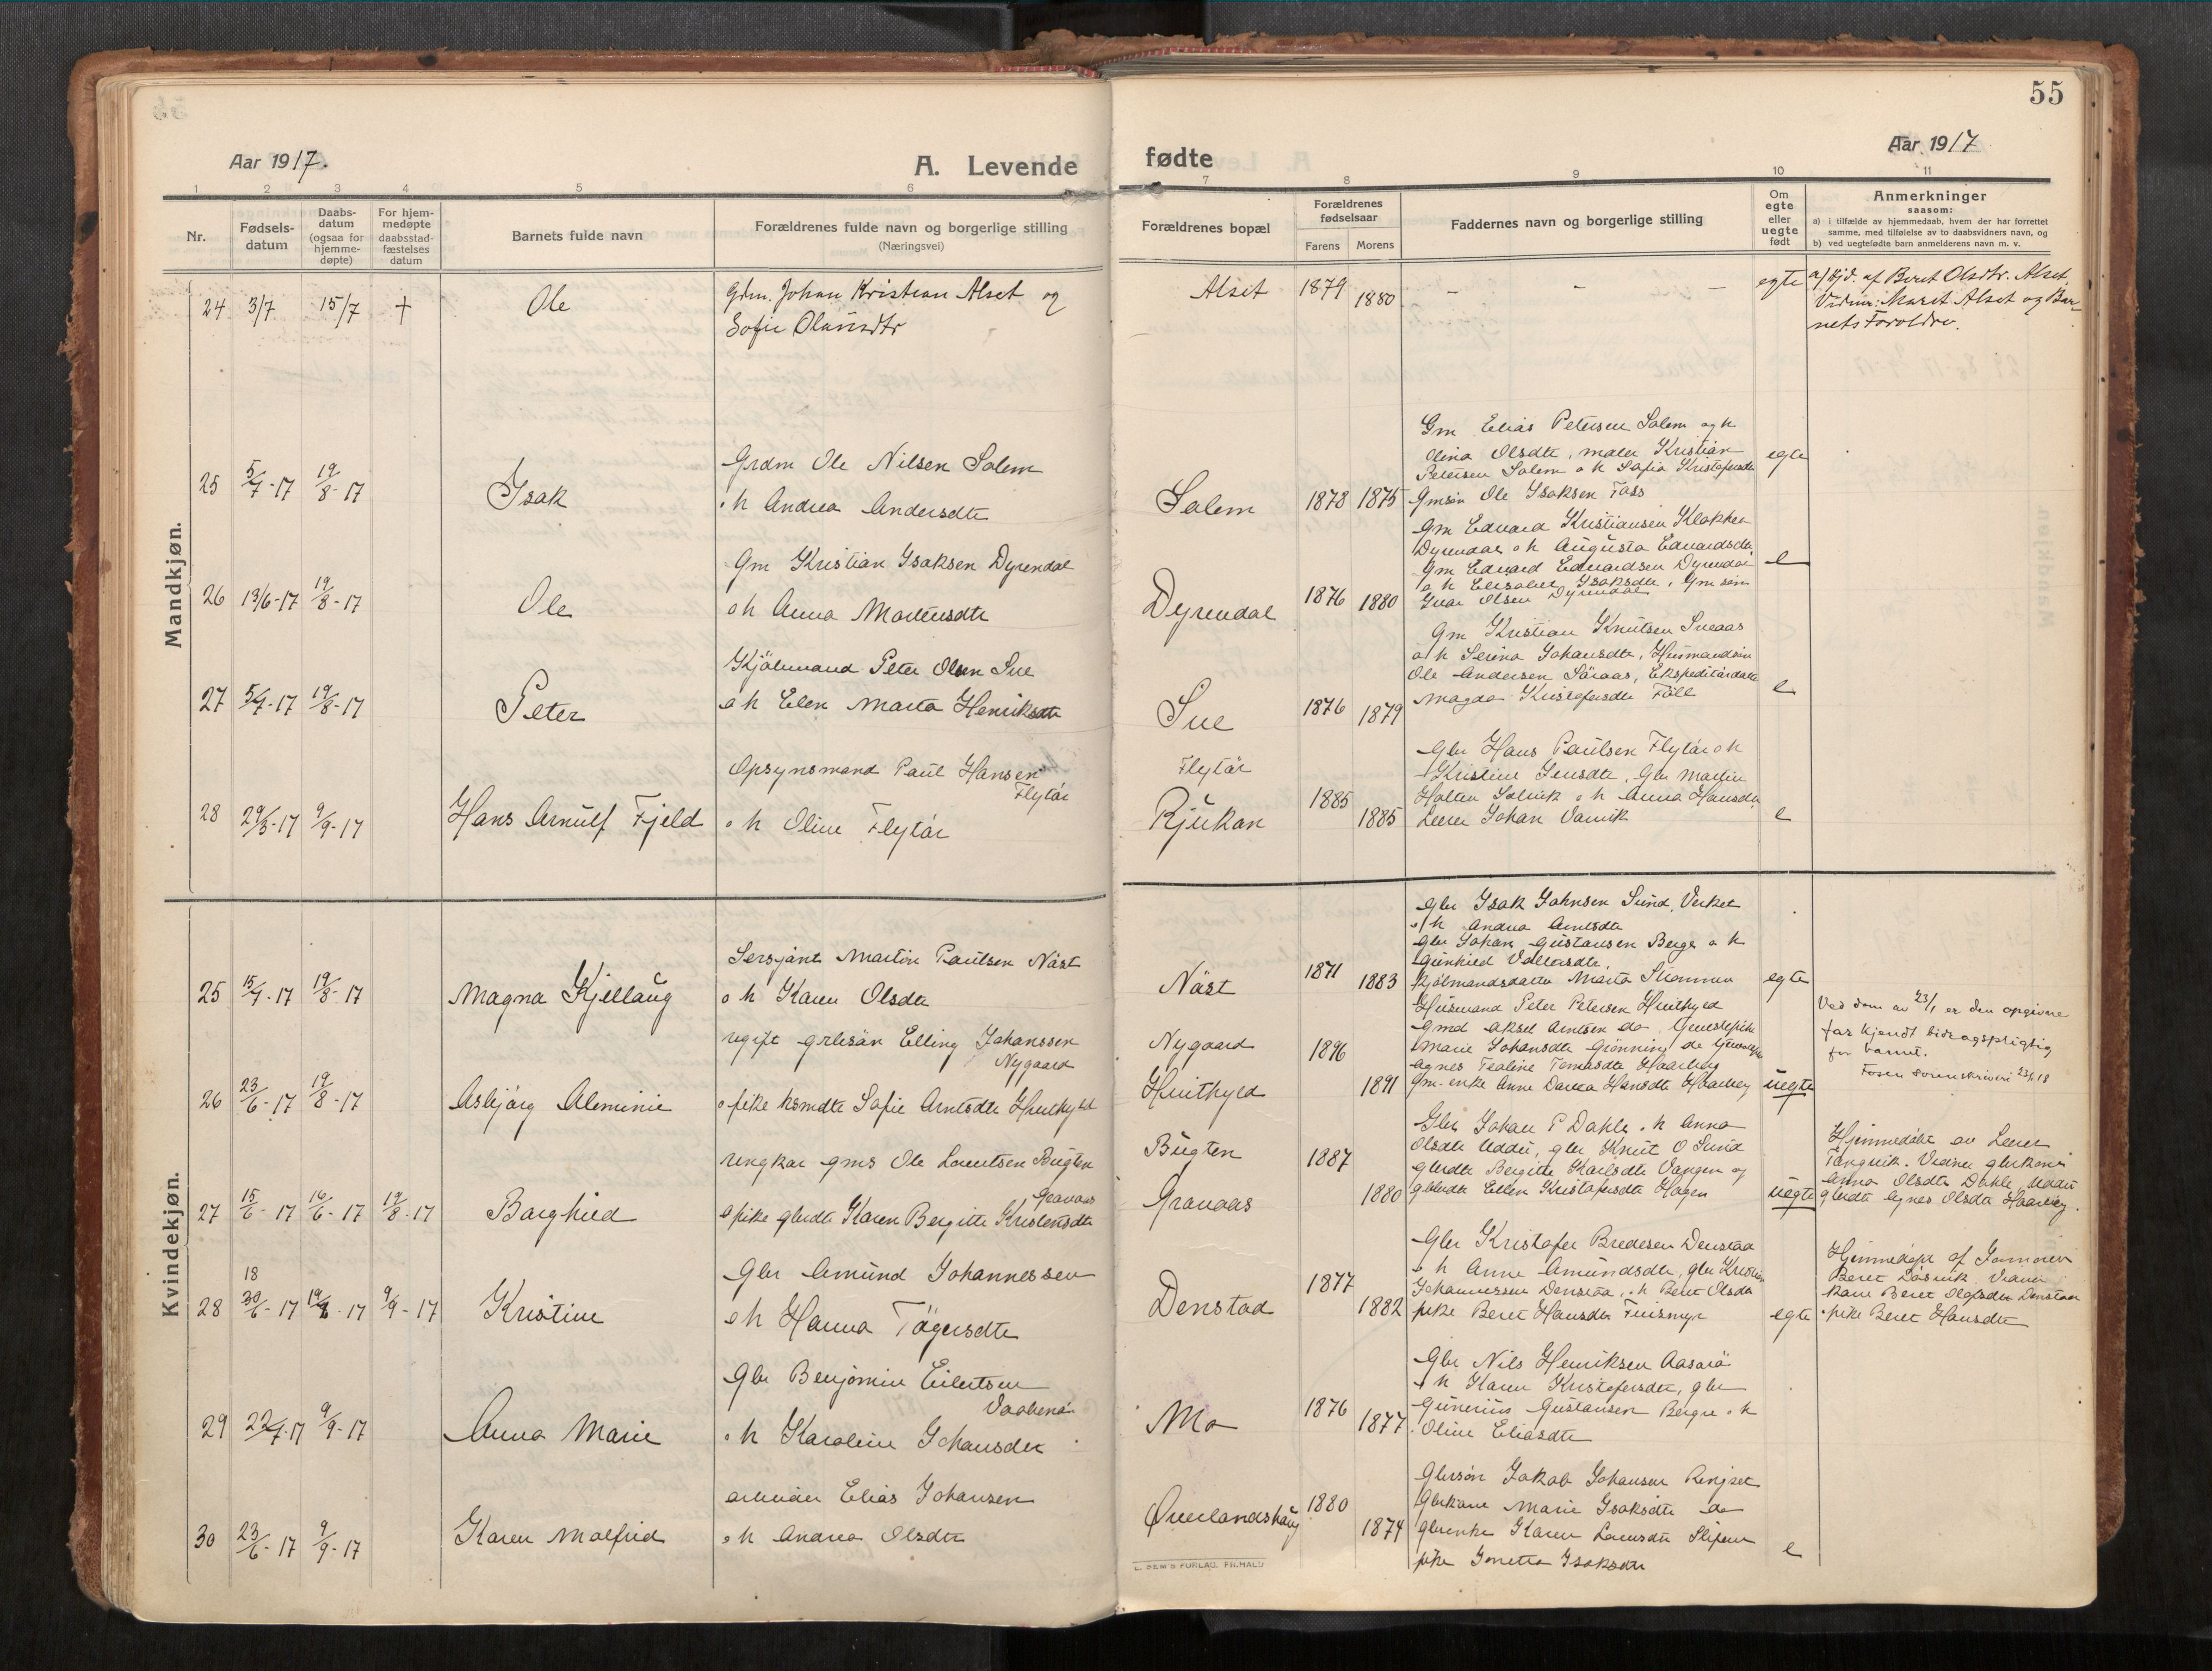 55
Aar 1917.
A. Levende
fødte
Aar 1917
1 2 3 4 5 6 7 8 9 10 11
Nr.
Fødsels-
datum
Daabs-
datum
(ogsaa for
hjemme-
døpte)
For hjem-
medøpte
daabsstad-
fæstelses
datum
Barnets fulde navn
Forældrenes fulde navn og borgerlige stilling
(Næringsvei)
Forældrenes bopæl
Forældrenes
fødselsaar
Farens
Morens
Faddernes navn og borgerlige stilling
Om
egte
eller
uegte
født
Anmerkninger
saasom:
a) i tilfælde av hjemmedaab, hvem der har forrettet
samme, med tilføielse av to daabsvidners navn, og
b) ved uegtefødte barn anmelderens navn m. v.
Mandkjøn.
24 3/7 15/7 + Ole
Grdm. Johan Kristian Alset og
Sofie Olausdtr
Alset 1879 1880 - - -
egte
a/ Hjd. af Beret Olsdtr. Alset
Vidner: Marit Alset og Bar-
nets Foreldre.
25 5/7-17 19/8-17 Isak
Grdm Ole Nilsen Solem
o h Andrea Andersdtr
Solem 1878 1875
Gm Elias Petersen Solem og h
Olina Olsdtr, maler Kristian
Petersen Solem o h Sofia Kristofersdtr
Gmsøn Ole Isaksen Foss
egte
26 13/6-17 19/8-17 Ole
Gm Kristian Isaksen Dyrendal
o h Anna Mortensdtr
Dyrendal 1876 1880
Gm Edvard Kristiansen Klakken
Dyrendal o h Augusta Edvardsdtr
Gm Edvard Edvardsen Dyrendal
o h Elisabet Isaksdtr, Gm søn
Ivar Olsen Dyrendal
e
27 5/7-17 19/8-17 Peter
Kjölmand Peter Olsen Sue
o h Elen Marta Henriksdtr
Sue 1876 1879
Gm Kristian Knutsen Sneaas
o h Serina Johansdtr, Husmandssøn
Ole Andersen Såraas, Ekspeditørdatter
Magda Kristofersdtr Föll
e
28 29/3-17 9/9-17 Hans Arnulf Fjeld
Opsynsmand Paul Hansen
Flytår
o h Oline Flytår
Flytår
Rjukan 1885 1885
Gbr Hans Paulsen Flytår o h
Kristine Jensdtr, Gbr Martin
Holten Solvik o h Anna Hansdtr
Lærer Johan Vanvik
e
Kvindekjøn.
25 15/7-17 19/8-17 Magna Kjellaug
Sersjant Martin Paulsen Näst
o h Karen Olsdtr
Näst 1871 1883
Gbr Isak Johnsen Sund, Verket
o h Andrea Arntsdtr
Gbr Johan Gustavsen Berge o h
Gunhild
Kjølmandsdatter Marta Strømmen
egte
26 23/6-17 19/8-17 Asbjörg Aleminie
ugift grbrsön Elling Johanssen
Nygaard
o pike hsmdtr Sofie Arntsdtr Hvithyld
Nygaard
Hvithyld 1896 1891
Husmand Peter Petersen Hvithyld
Gmd Aksel Arntsen do, tjenestepike
Marie Johansdtr Grønning do
Agnes Teoline Tomasdtr Haarberg
Gm-enke Anne Dartea Hansdtr Haarberg
uegte
Ved dom av 23/1 er den opgivne
far kjendt bidragspligtig
for barnet.
Fosen sorenskriveri 23/1 18
27 15/6-17 16/6-17 19/8-17 Borghild
ungkar gms Ole Lorentsen Bugten
Granaas
o pike gbrdtr Karen Bergitte Kristensdtr
Bugten
Granaas 1887 1880
Gbr Johan P Dahle o h Anna
Olsdtr Uddu, gbr Knut O Sund
gbrdtr Bergitte Karlsdtr Vangen og
gbrdtr Ellen Kristofersdtr Hagen
uegte
Hjemmedöbt av Lærer
Tangvik. Vidner gbrkone
Anna Olsdtr Dahle, Uddu
gbrdtr Agnes Olsdtr Haarberg.
28 18 30/6-17 19/8-17 9/9-17 Kristine
Gbr Amund Johannessen
o h Hanna Tögersdtr
Denstad 1877 1882
Gbr Kristofer Bredesen Denstad
o h Anne Amundsdtr, gbr Kristian
Johannessen Denstad, o h Beret Olsdtr
pike Beret Hansdtr Fuismyr
egte
Hjemmedöpt af Jormoder
Beret Løsvik. Vidner
kone Beret Olafsdtr Denstad
pike Beret Hansdtr
29 22/7-17 9/9-17 Anna Marie
Gbr Benjamin Eilertsen
o h Karoline Johansdtr
Mo 1876 1877
Gbr Nils Henriksen Aasarö
o h Karen Kristofersdtr, gbr
Gunerius Gustavsen Berge o h
Oline Eliasdtr
30 23/6-17 9/9-17 Karen Malfrid
arbeider Elias Johansen
o h Andrea Olsdtr
Øverlandshaug 1880 1874
Gbrsøn Jakob Johansen Ringset
Gbrkone Marie Isaksdtr do
gbrenke Karen Larsdtr Slipern
pike Jonetta Isaksdtr
e
E. SEM'S FORLAG, FR.HALD